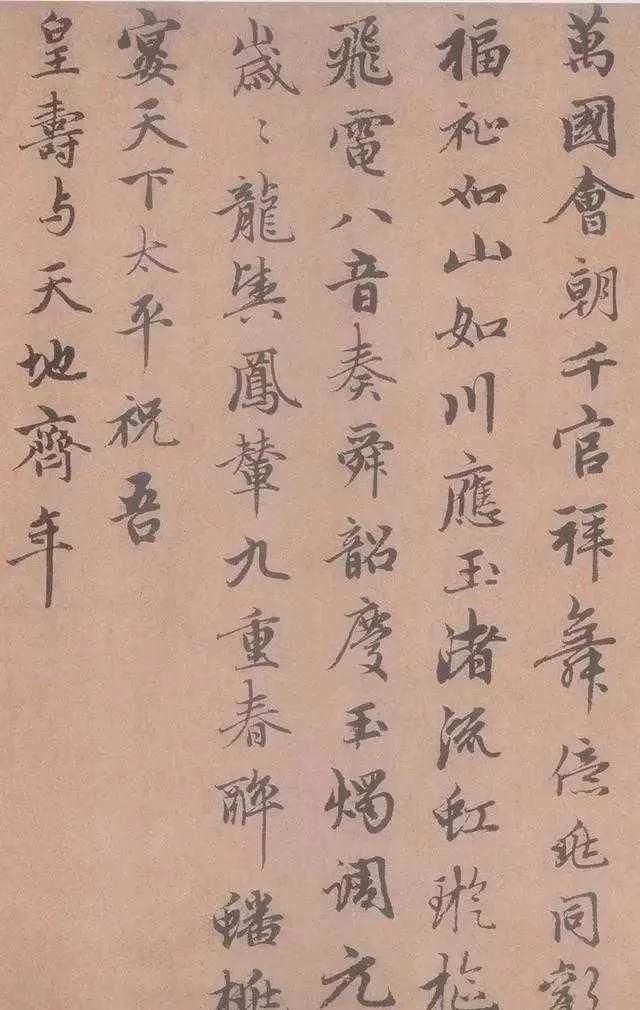 萬國會朝千官拜舞億兆同
福祉如山如川應玉渚流虹璇樞
飛電八音奏舜韶慶玉燭調元
歲〻龍輿鳳輦九重春醉蟠桃
宴天下太平祝吾
皇壽与天地齊年